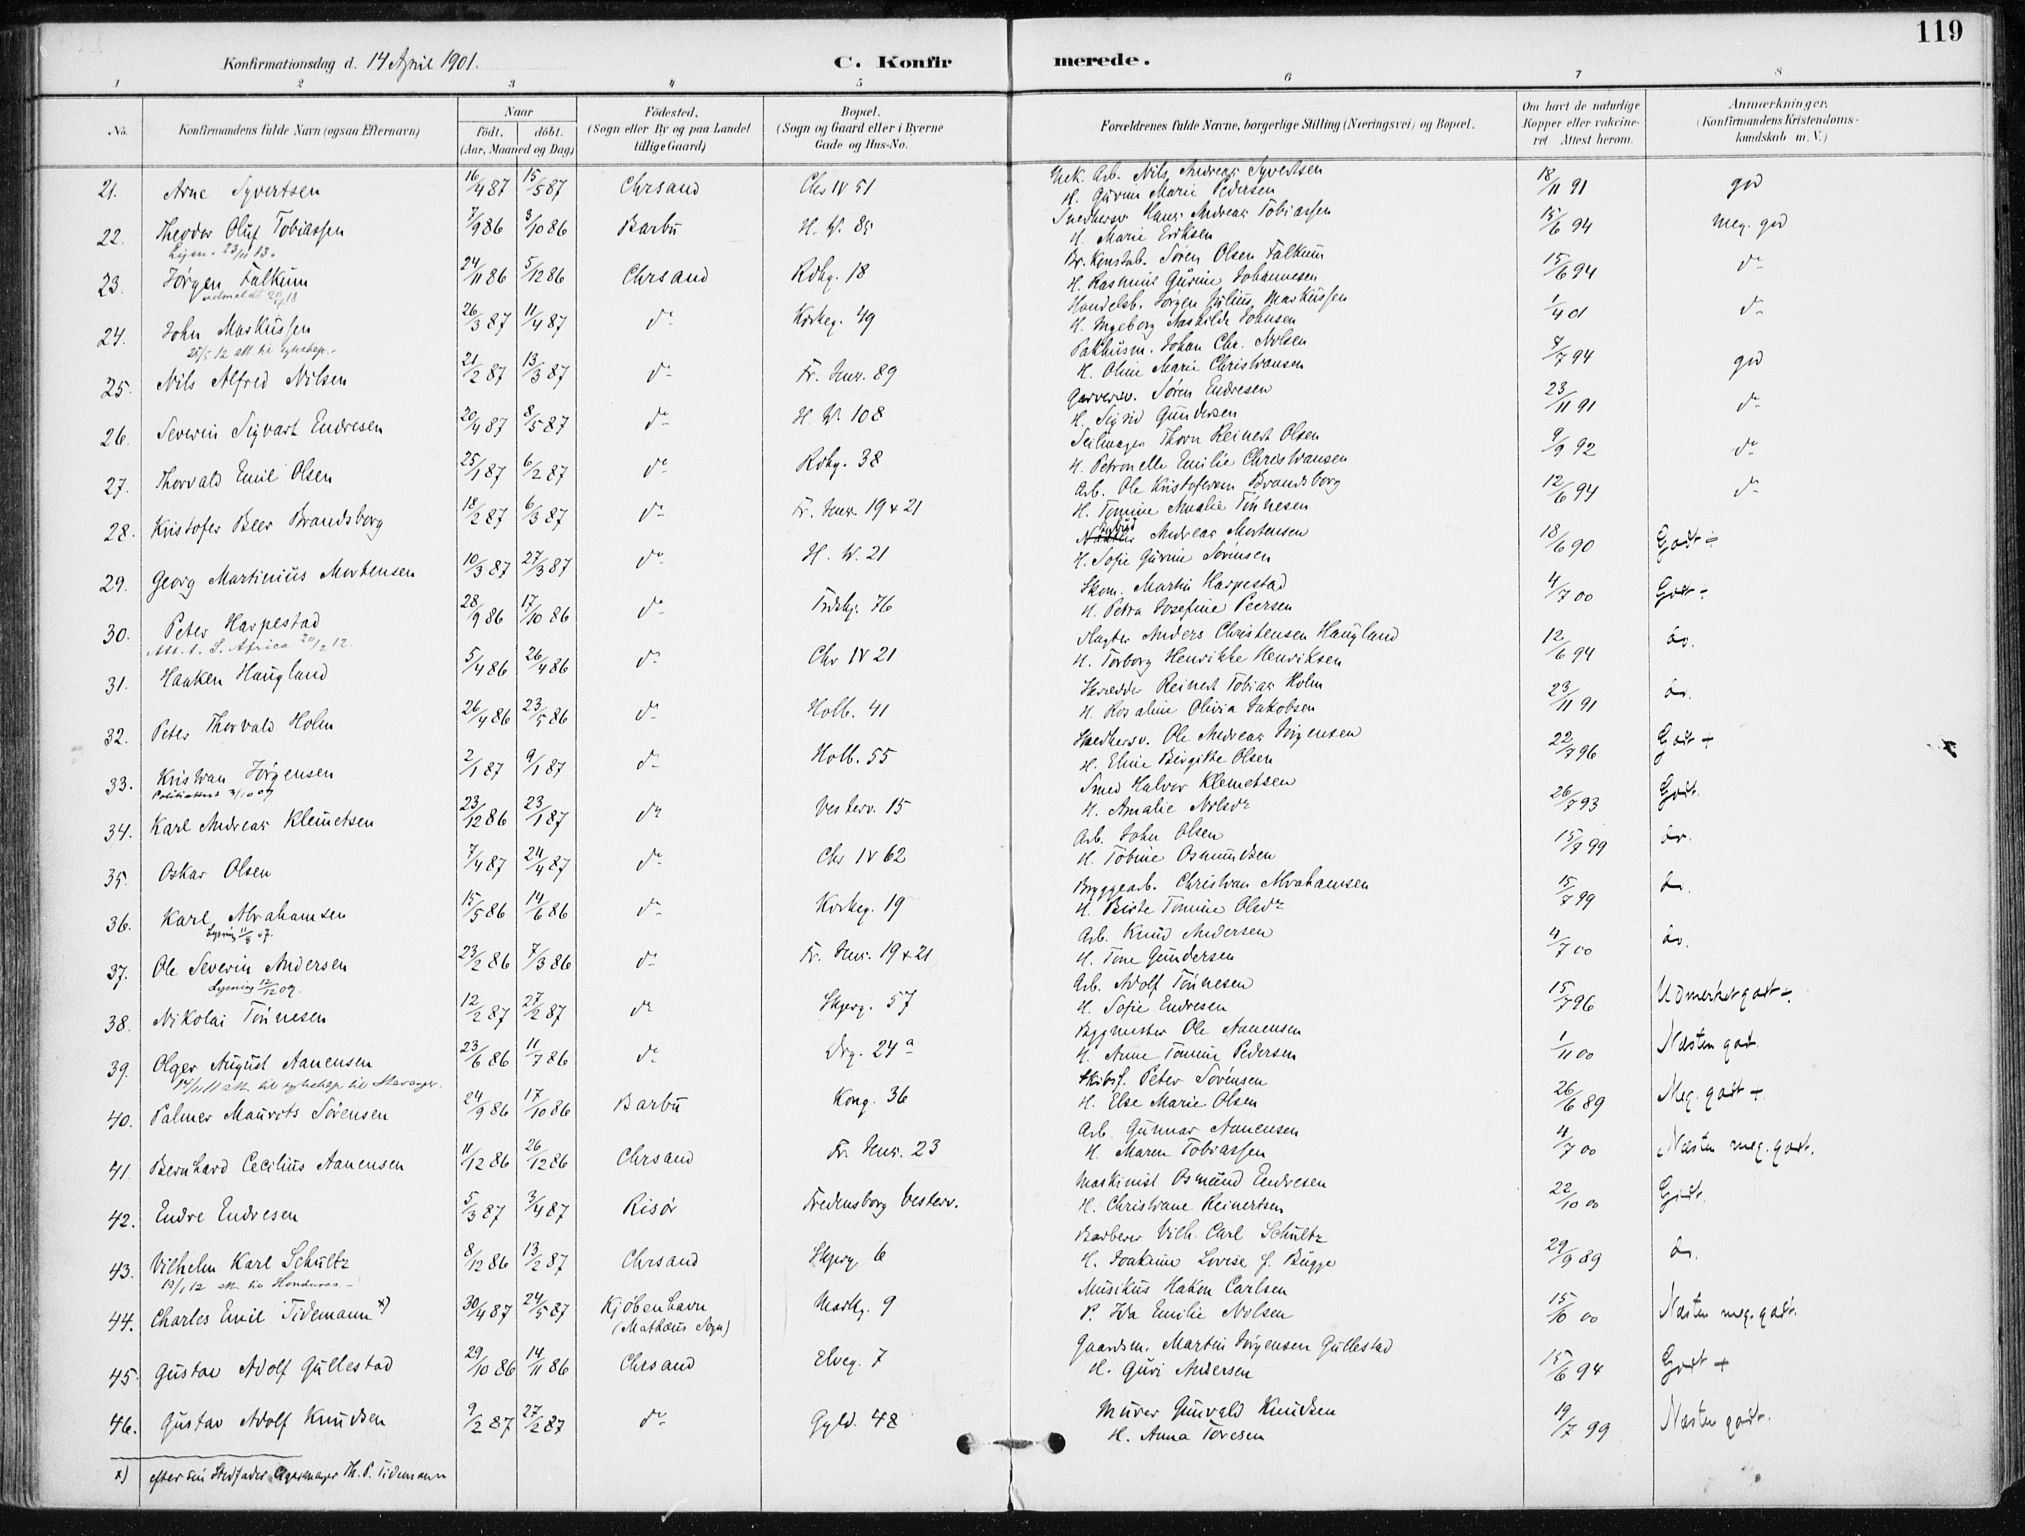 119
Konfirmationsdag d. 14 April 1901.
C. Konfirmerede.
1 2 3 4 5 6 7 8
No.
Konfirmandens fulde Navn (ogsaa Efternavn)
Naar
født. døbt.
(Aar, Maaned og Dag)
Fødested.
(Sogn eller By og paa Landet
tillige Gaard)
Bopæl.
(Sogn og Gaard eller i Byerne
Gade og Hus-No.
Forældrenes fulde Navne, borgerlige Stilling (Næringsvei) og Bopæl.
Om havt de naturlige
Kopper eller vakcine-
ret Attest herom.
Anmærkninger.
(Konfirmandens Kristendoms-
kundskab m. V.)
21. Arne Syvertsen 16/4 87 15/5 87 Chrsand Chr IV 51 Mek. Arb. Nils Andreas Syvertsen 18/11 91 god
H. Gurine Marie Pedersen
22. Theodor Oluf Tobiassen 7/9 86 3/10 86 Barbu H. W. 85 Snedkersv. Hans Andreas Tobiassen 15/6 94 Meg. god
Lysn. 23/11 13. H. Marie Eriksen
23. Jørgen Falkum 24/11 86 5/12 86 Chrsand Rdhg. 18 Br. Konstab. Søren Olsen Falkum 15/6 94 do
H. Rasmine Gurine Johannesen
24. John Markussen 26/3 87 11/4 87 do Kirkeg. 49 Handelsb. Jørgen Julius Markussen 1/4 01 do
H. Ingeborg Mathilde Johnsen
25. Nils Alfred Nilsen 21/2 87 13/3 87 do Fr. Henr. 89 Pakhusm. Johan Chr. Nilsen 7/7 94 god
H. Oline Marie Christiansen
26. Severin Sigvart Endresen 20/4 87 8/5 87 do H. W. 108 Garversv. Søren Endresen 23/11 91 do
H. Sigrid Gundersen
27. Thorvald Emil Olsen 25/1 87 6/2 87 do Rdhg. 38 Seilmager Thorn Reinert Olsen 9/9 92 do
H. Petronelle Emilie Christiansen
28. Kristofer Peer Brandsborg 18/2 87 6/3 87 do Fr. Henr. 19 + 21 Arb. Ole Kristofersen Brandsborg 12/6 94 do
H. Tomine Amalie Tønnesen
29. Georg Martinius Mortensen 10/3 87 27/3 87 do H. W. 21 Andreas Mortensen 18/6 90 Godt ÷
H. Sofie Gurine Sørensen
30. Peter Harpestad 28/9 86 17/10 86 do Trdskj. 76 Skom. Martin Harpestad 4/7 00 Godt ÷
Att. t. S. Africa 20/2 12. H. Petra Josefine Peersen
31. Haaken Haugland 5/4 86 26/4 86 do Chr IV 21 Slagter Anders Christensen Haugland 12/6 94 do.
H. Torborg Henrikke Henriksen
32. Peter Thorvald Holm 26/4 86 23/5 86 do Holb. 41 Skrædder Reinert Tobias Holm 23/11 91 do.
H. Rosaline Olivia Jakobsen
33. Kristian Jørgensen 2/1 87 9/1 87 do Holb. 55 Snedkersv. Ole Andreas Jørgensen 22/7 96 Godt +
Politiattest 3/10 09 H. Eline Birgitte Olsen
34. Karl Andreas Klemetsen 23/12 86 23/1 87 do Vesterv. 15 Smed Halvor Klemetsen 26/7 93 Godt.
H. Amalie Nilsdr
35. Oskar Olsen 7/4 87 24/4 87 do Chr IV 62 Arb. John Olsen 15/7 99 do.
H. Tobine Osmundsen
36. Karl Abrahamsen 15/5 86 14/6 86 do Kirkeg. 19 Bryggearb. Christian Abrahamsen 15/7 99 do.
Lysning 11/8 07. H. Birte Tomine Olsdr
37. Ole Severin Andersen 23/2 86 7/3 86 do Fr. Henr. 19 + 21 Arb. Knud Andersen 4/7 00 do.
Lysning 12/12 09. H. Tone Gundersen
38. Nikolai Tønnesen 12/2 87 27/2 87 do Skjerg. 57 Arb. Adolf Tønnesen 15/7 96 Udmerket godt ÷
H. Sofie Endresen
39. Olger August Aanensen 23/6 86 11/7 86 do Drg. 24a Bygmester Ole Aanensen 1/11 00 Næsten godt.
H. Anne Tomine Pedersen
40. Palmer Maurits Sørensen 24/9 86 17/10 86 Barbu Kong. 36 Skibsf. Peter Sørensen 26/6 89 Meg. godt ÷
H. Else Marie Olsen
41. Bernhard Cecilius Aanensen 11/12 86 26/12 86 Chrsand Fr. Henr. 23 Arb. Gunnar Aanensen 4/7 00 Næsten meg. godt.
H. Maren Tobiassen
42. Endre Endresen 5/3 87 3/4 87 Risør Fredensborg Vesterv. Maskinist Osmund Endresen 22/10 00 Godt.
H. Christiane Reinertsen
43. Vilhelm Karl Schultz 8/12 86 13/2 87 Chrsand Skjerg 6 Barberer Vilh. Carl Schultz 29/9 89 do.
19/1 12 att. til Honduras – H. Joakime Lovise f. Bugge
44. Charles Emil Tidemann x) 30/4 87 24/5 87 Kjøbenhavn Markg. 9 Musikus Hakon Carlsen 15/10 00 Næsten meg. godt.
(Mathæus Sogn) P. Ida Emilie Nilsen
45. Gustav Adolf Gullestad 29/10 86 14/11 86 Chrsand Elveg. 7 Gaardm. Martin Jørgensen Gullestad 15/6 94 Godt +
H. Guri Andersen
46. Gustav Adolf Knudsen 9/2 87 27/2 87 do Gyld. 48 Murer Gunvald Knudsen 19/7 99 Næsten godt.
H. Anna Toresen
x) efter sin Stedfader Th. P. Tidemann